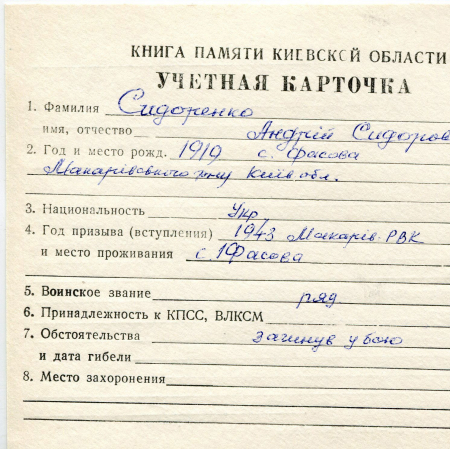 КНИГА ПАМЯТИ КИЕВСКОЙ ОБЛАСТИ
УЧЕТНАЯ КАРТОЧКА
1. Фамилия Сидоренко
имя, отчество Андрій Сидоров
2. Год и место рожд. 1919 с. Фасова
Макарівського р-ну Київ обл.
3. Национальность Укр,
4. Год призыва (вступления) 1943 Макарів. РВК
и место проживания с. Фасова
5. Воинское звание ряд
6. Принадлежность к КПСС, ВЛКСМ
7. Обстоятельства загинув у бою
и дата гибели
8. Место захоронения